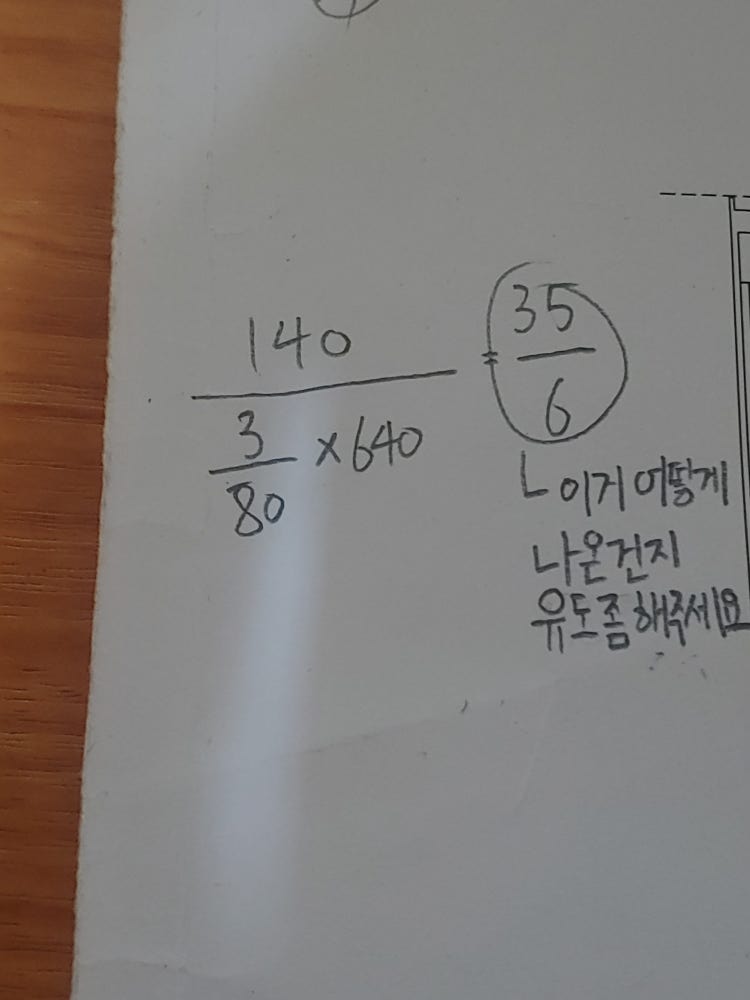 140
3/80 ×640
= 35/6
ㄴ이거 어떻게
나온건지
유도좀해주세요